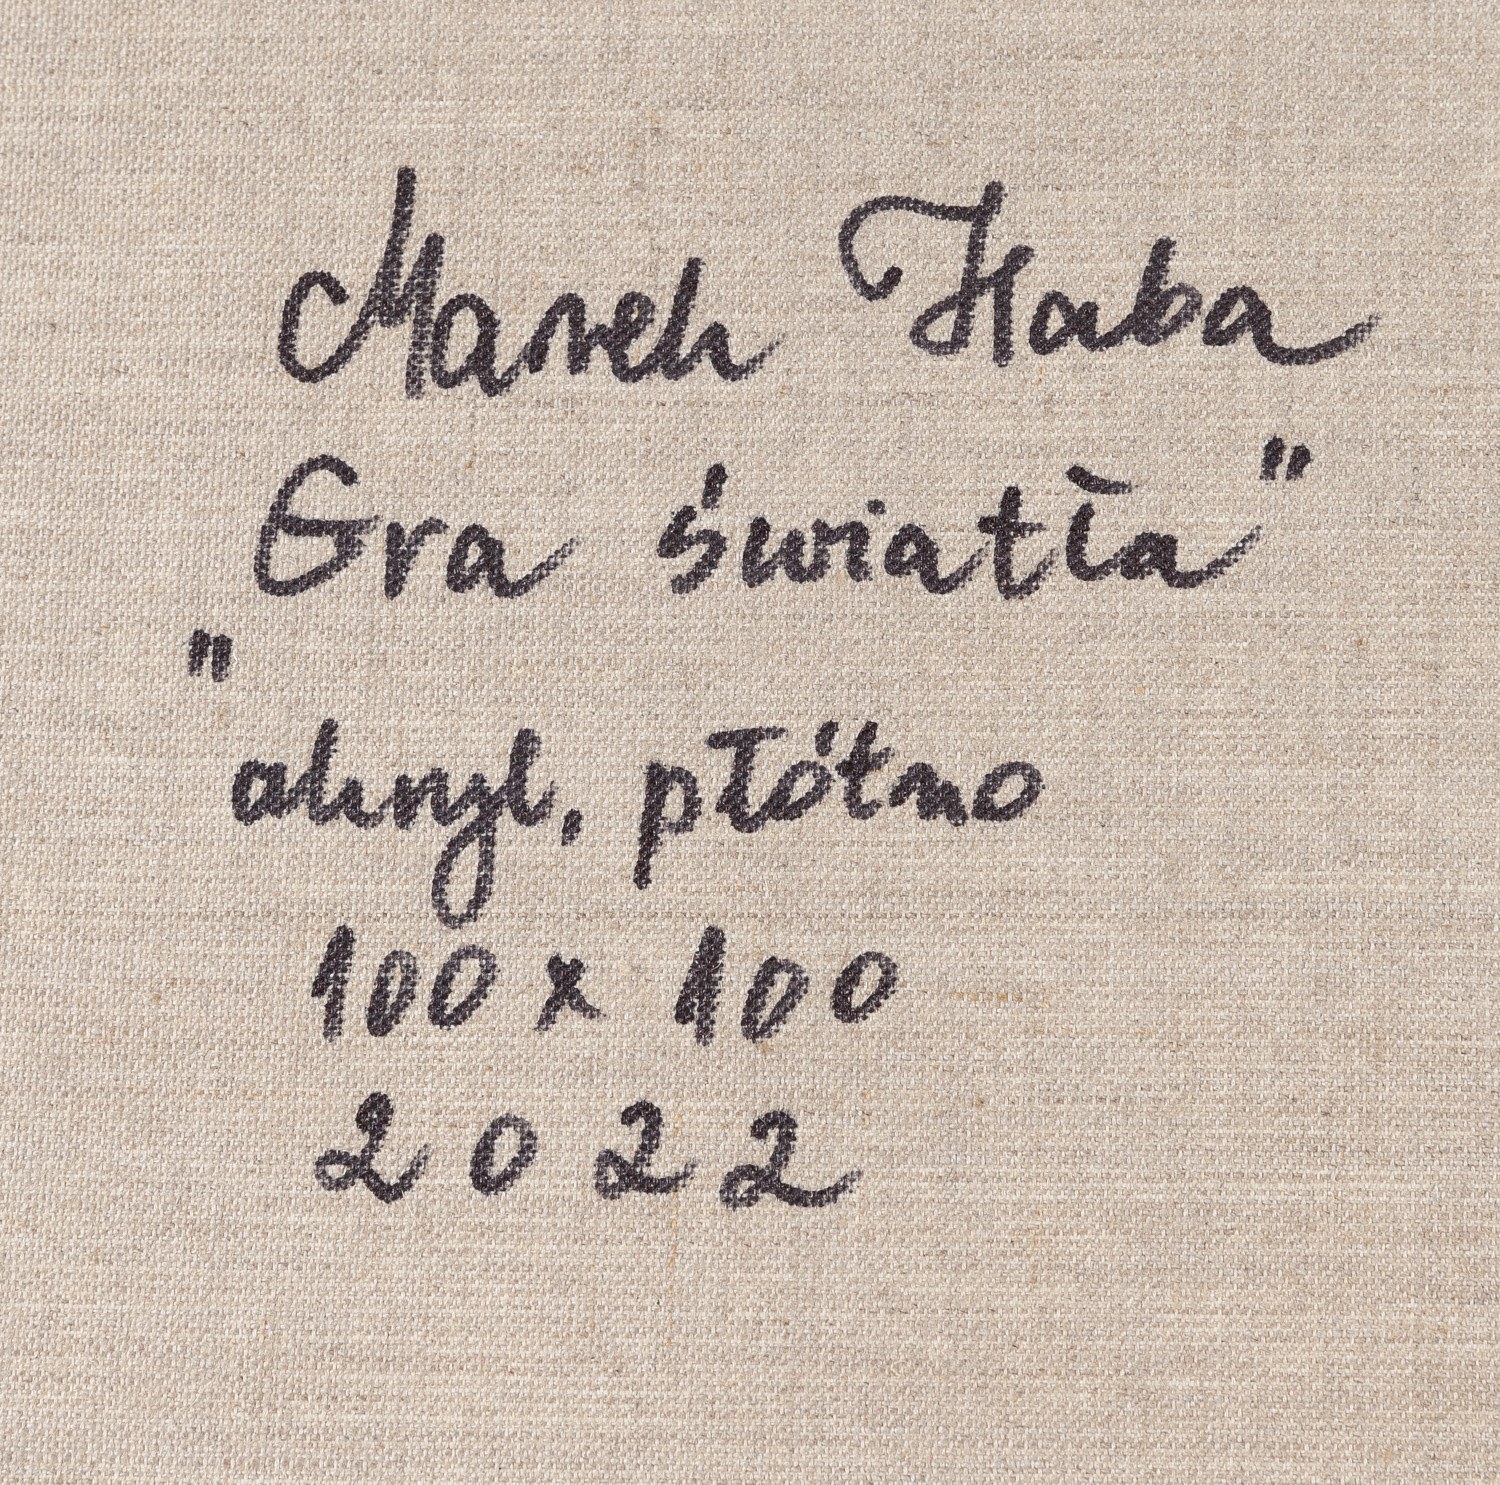 Marek Haba
Gra światła"
"
akryl, płótno
100 x 100
2022